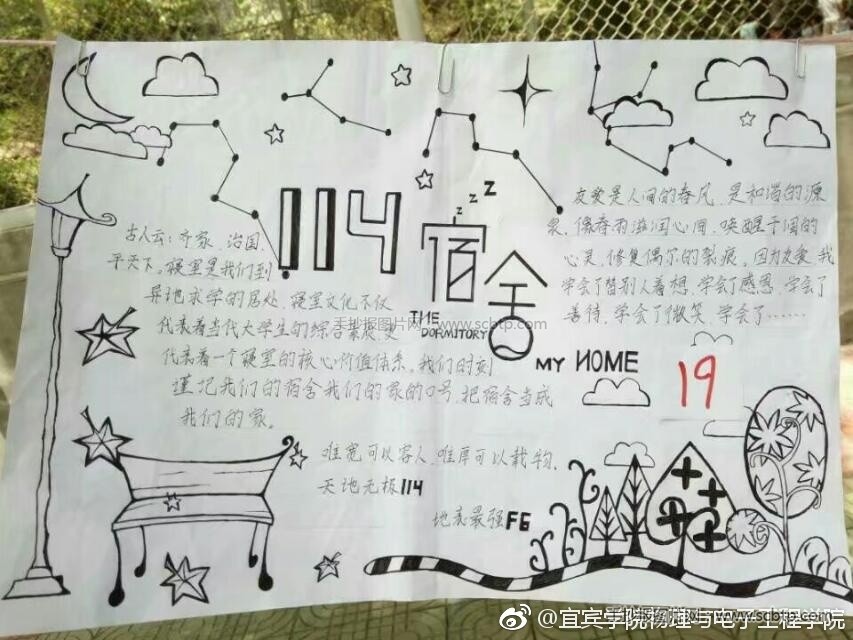 114 宿舍
zzZ
THE
DORMITORY
MY HOME
古人云:齐家、治国、
平天下。寝室是我们到
异地求学的居处、寝室文化不仅
代表着当代大学生的综合素质,更
代表着一个寝室的核心价值体系。我们时刻
谨记我们的宿舍我们的家的口号.把宿舍当成
我们的家。
友爱是人间的春风、是和谐的源
泉、像春雨滋润心田、唤醒干涸的
心灵、修复偶尔的裂痕。因为友爱、我
学会了替别人着想、学会了感恩、学会了
善待、学会了微笑、学会了……
19
唯宽可以容人、唯厚可以载物、
天地无极114
地表最强F6
手抄报图片网 www.scbtp.com
@宜宾学院物理与电子工程学院